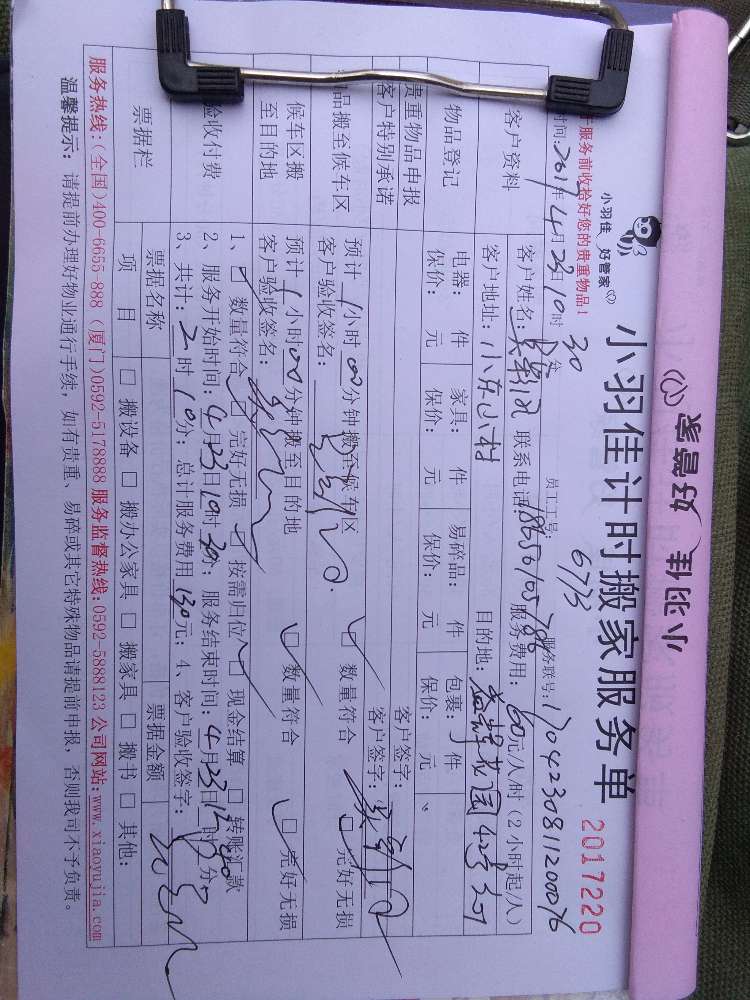 小羽佳 好管家
小羽佳 好管家
小羽佳计时搬家服务单
2017220
服务前收拾好您的贵重物品!
员工工号: 6773
服务联号: 170423081120076
时间: 2017年4月23日10时30分
客户资料
客户姓名:
联系电话:
服务费用: 60元/人/时 (2小时起/人)
客户地址: 小东山村
目的地:
物品登记
电器: 件 家具: 件 易碎品: 件 包裹: 件
保价: 元 保价: 元 保价: 元 保价: 元
贵重物品申报
客户签字:
客户特别承诺
客户签字:
物品搬至候车区
预计 1小时00分钟搬至候车区
□ 数量符合 □ 完好无损
客户验收签名:
候车区搬至目的地
预计 1小时00分钟搬至目的地
□ 数量符合 □ 完好无损
客户验收签名:
验收付费
1、□ 数量符合 □ 完好无损 □ 按需归位 □ 现金结算 □ 转账汇款
2、服务开始时间: 4月23日10时30分; 服务结束时间: 4月23日12时40分
3、共计: 2时10分; 总计服务费用130元; 4、客户验收签字:
票据栏
票据名称 票据金额
项 目 □ 搬设备 □ 搬办公家具 □ 搬家具 □ 搬书 □ 其他:
服务热线:(全国)400-6655-888 (厦门)0592-5178888 服务监督热线:0592-5888123 公司网站:www.xiaoyujia.com
温馨提示: 请提前办理好物业通行手续, 如有贵重、易碎或其它特殊物品请提前申报, 否则我司不予负责。